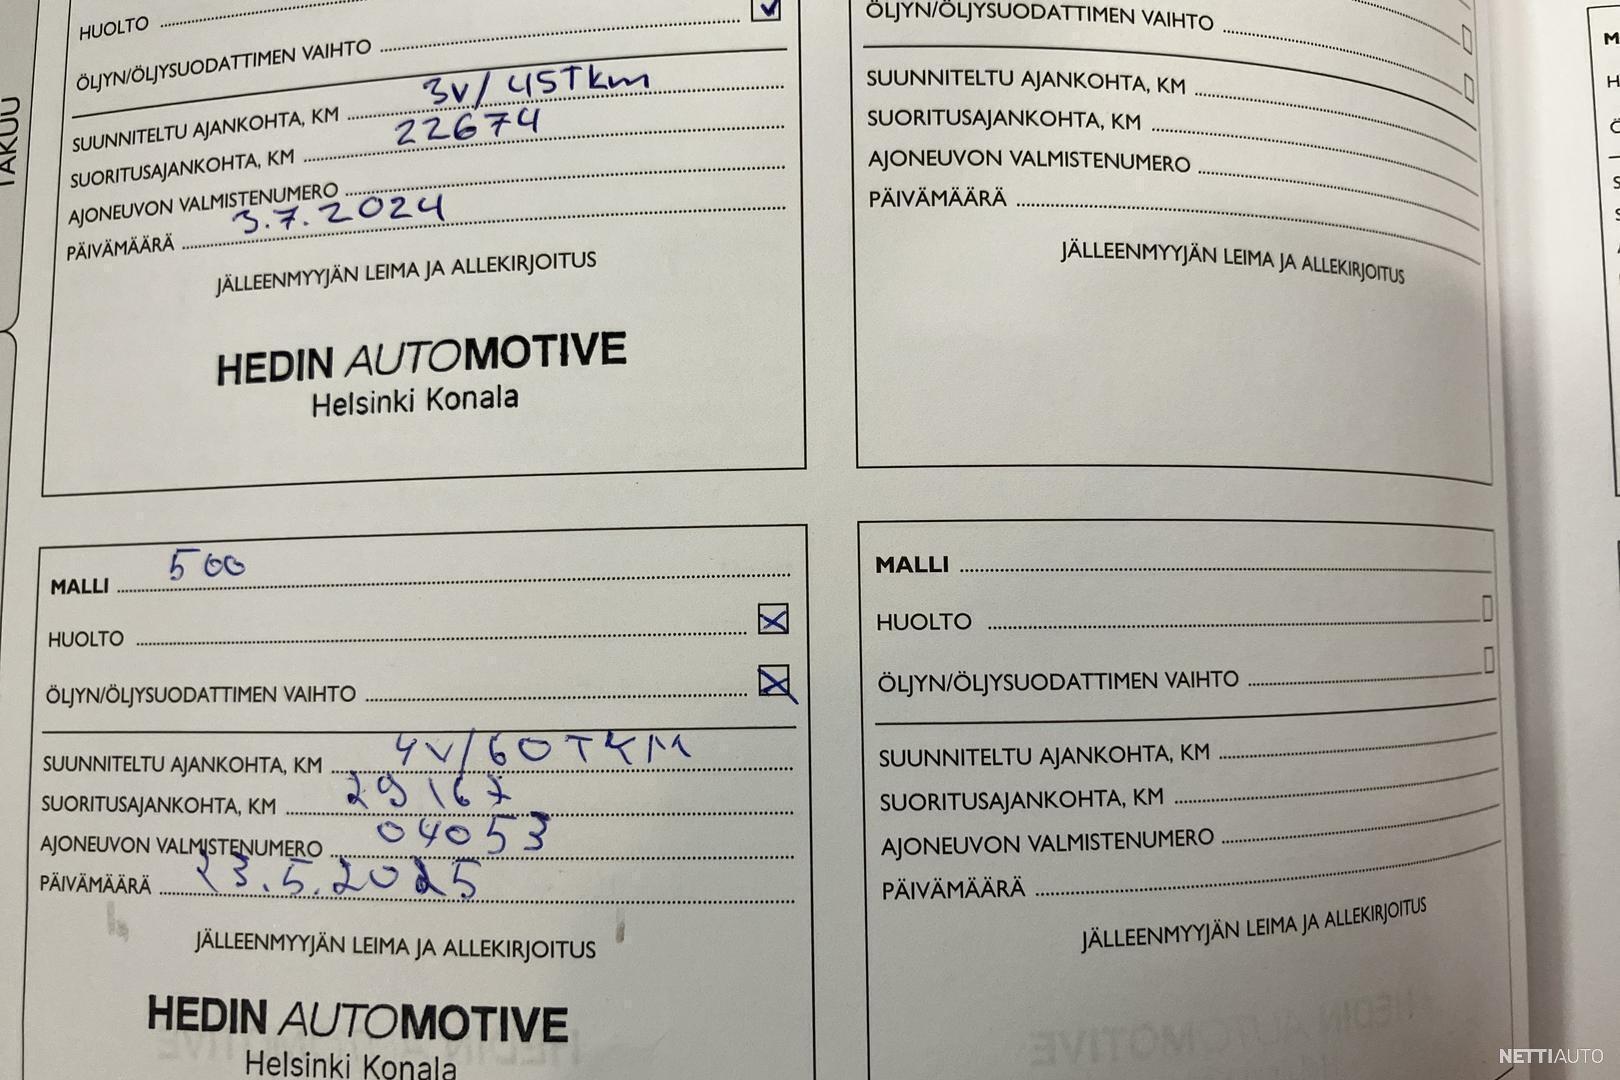 TAKUU
HUOLTO
ÖLJYN/ÖLJYSUODATTIMEN VAIHTO
SUUNNITELTU AJANKOHTA, KM 3v/ 45Tkm
SUORITUSAJANKOHTA, KM 22674
AJONEUVON VALMISTENUMERO
PÄIVÄMÄÄRÄ 3.7.2024
JÄLLEENMYYJÄN LEIMA JA ALLEKIRJOITUS
HEDIN AUTOMOTIVE
Helsinki Konala
MALLI 500
HUOLTO
ÖLJYN/ÖLJYSUODATTIMEN VAIHTO
SUUNNITELTU AJANKOHTA, KM 4V/60TKM
SUORITUSAJANKOHTA, KM 29167
AJONEUVON VALMISTENUMERO 04053
PÄIVÄMÄÄRÄ 23.5.2025
JÄLLEENMYYJÄN LEIMA JA ALLEKIRJOITUS
HEDIN AUTOMOTIVE
Helsinki Konala
ÖLJYN/ÖLJYSUODATTIMEN VAIHTO
SUUNNITELTU AJANKOHTA, KM
SUORITUSAJANKOHTA, KM
AJONEUVON VALMISTENUMERO
PÄIVÄMÄÄRÄ
JÄLLEENMYYJÄN LEIMA JA ALLEKIRJOITUS
MALLI
HUOLTO
ÖLJYN/ÖLJYSUODATTIMEN VAIHTO
SUUNNITELTU AJANKOHTA, KM
SUORITUSAJANKOHTA, KM
AJONEUVON VALMISTENUMERO
PÄIVÄMÄÄRÄ
JÄLLEENMYYJÄN LEIMA JA ALLEKIRJOITUS
NETTIAUTO